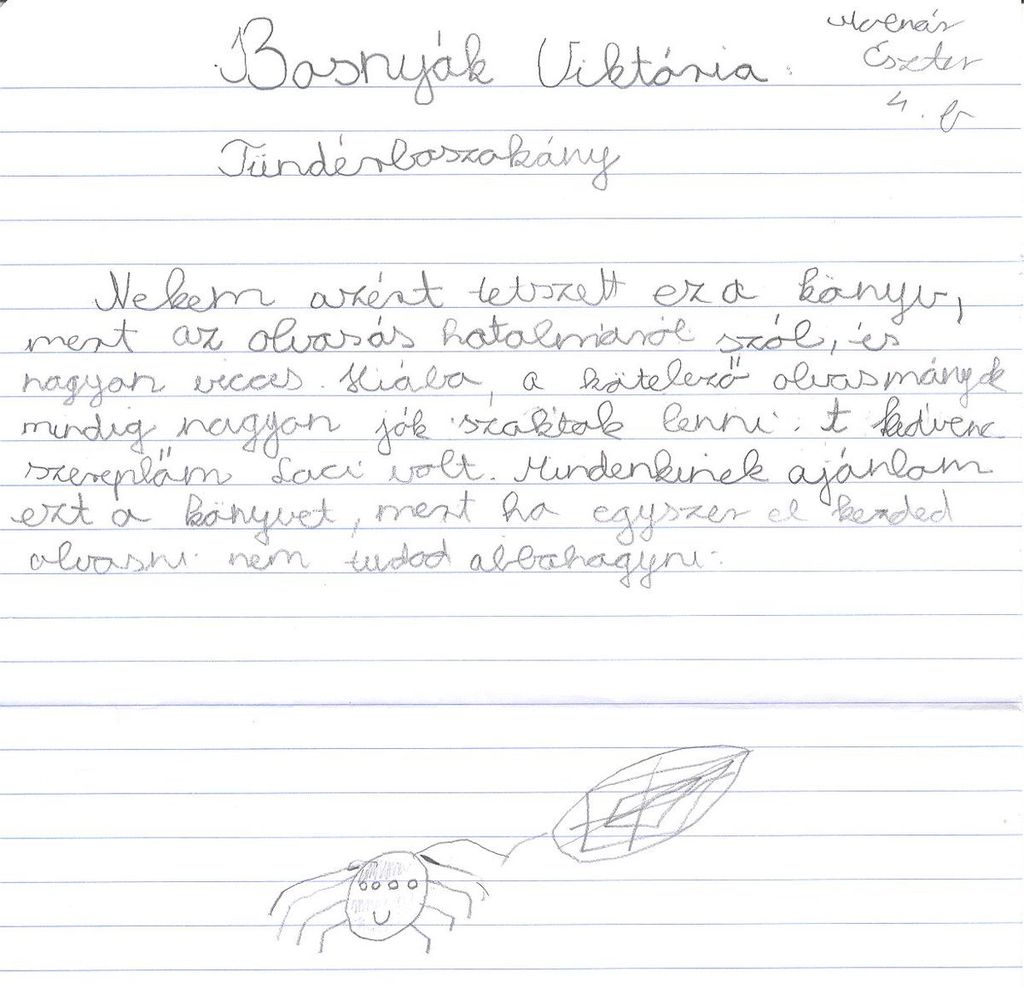 Bosnyák Viktória
Molnár
Eszter
4. b
Tündérboszokány
Nekem azért tetszett ez a könyv,
mert az olvasás hatalmáról szól, és
nagyon vicces. Hiába, a kötelező olvasmányok
mindig nagyon jók szoktak lenni. A kedvenc
szereplőm Laci volt. Mindenkinek ajánlom
ezt a könyvet, mert ha egyszer el kezded
olvasni nem tudod abbahagyni.